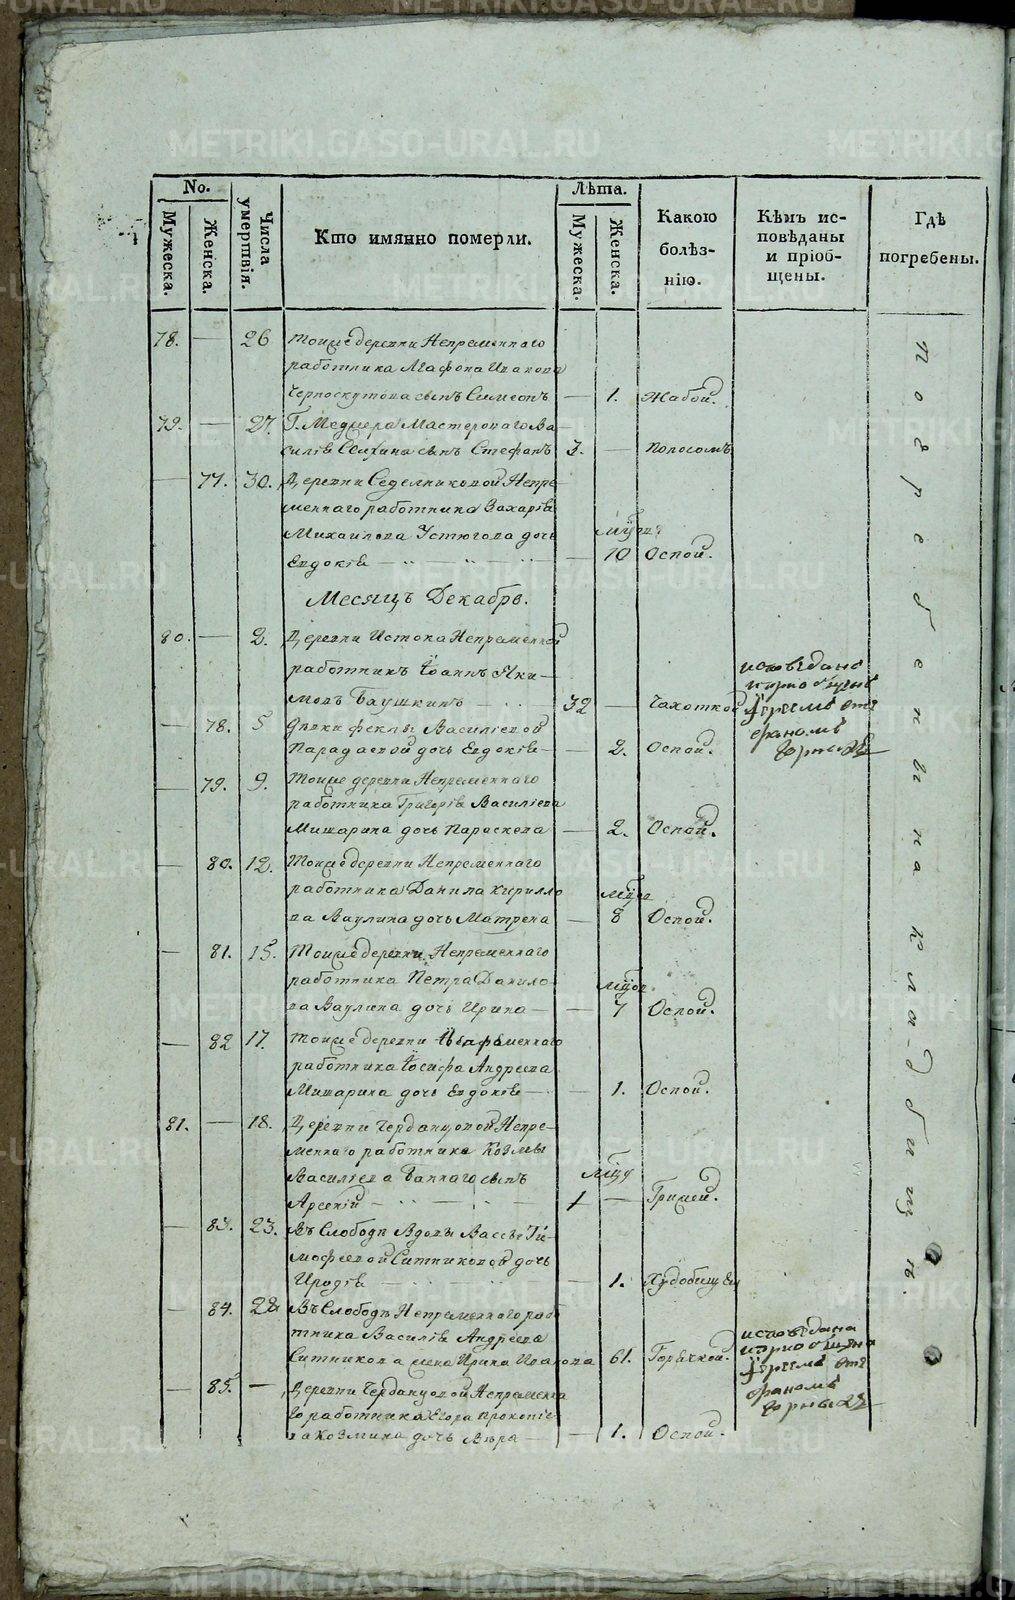 No.
Лѣта.
Мужеска.
Женска.
Числа умертвія.
Кто имянно померли.
Мужеска.
Женска.
Какою болѣз-нію.
Кѣмъ ис-повѣданы и пріоб-щены.
Гдѣ погребены.
78. — 26 тоиже деревни Непременнаго
работника Агафона Иванова
Черноскутова сынъ Симеонъ — 1. Жабой.
79. — 27. Мастероваго Ва-
силія сынъ Стефанъ 3. — поносомъ
— 77. 30. Деревни Седелниковой Непре-
меннаго работника Захарія
Михаилова Устюгова дочь
Евдокія — 10 Оспой.
Месяцъ Декабрь.
80. — 2. Деревни Истока Непременной
работникъ Іоаннъ Яки-
мовъ Баушкинъ — 32 — Чахоткой
исповѣданъ
и приобщенъ
— 78. 5 Девки Феклы Василіевой
дочь Евдокія — 2. Оспой.
— 79. 9. Тоиже деревни Непременнаго
работника Григорія Василіева
Мишарина дочь Параскева — 2. Оспой.
— 80. 12. Тоиже деревни Непременнаго
работника Данила Кирилло
ва Ваулина дочь Матрена — 8 Оспой.
— 81. 15. Тоиже деревни Непременнаго
работника Петра Данило-
ва Ваулина дочь Ирина — 7 Оспой.
— 82 17. Тоиже деревни Непременнаго
работника Іосифа Андреева
Мишарина дочь Евдокія — 1. Оспой.
81. — 18. Деревни Чердынцовой Непре-
меннаго работника Козмы
Василіева сынъ
Арсеній — 1 — Грижей.
— 83. 23. Въ Слободѣ Вдовы Вассы Ти-
мофеевой Ситниковой дочь
Иродія — 1.
— 84. 28 Въ Слободѣ Непременнаго рабо
тника Василія Андреева
Ситникова жена Ирина Иванова 61. Горячкой.
исповѣдана
и приобщена
— 85. — Деревни Чердынцовой Непременна
го работника Егора Прокопіе
ва Козмина дочь Вѣра — 1. Оспой.
погребены на кладбищѣ.
METRIKI.GASO-URAL.RU